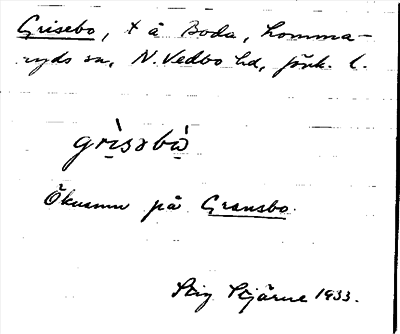 Grisebo, t å Boda, Lomma-
ryds sn, N. Vedbo hd, Jönk. l.
grìsəbò
Öknamn på Gransbo.
Stig Stjärne 1933.